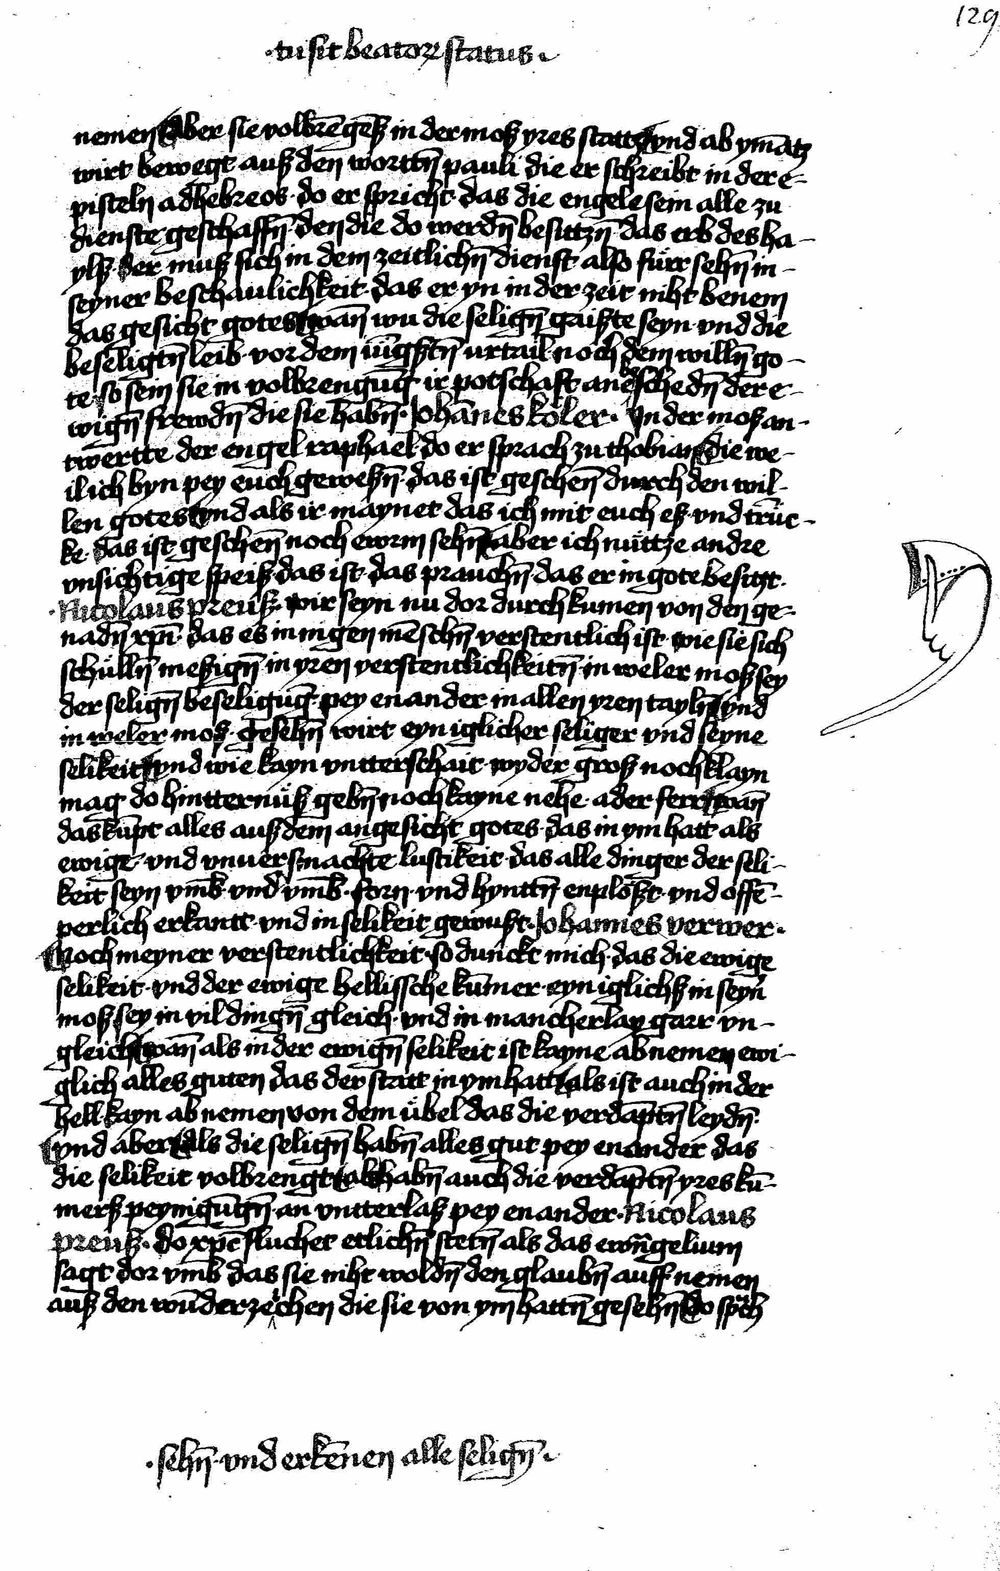 129
·tu sit beatorꝝ status·
nemen Aber sie volbrēgēß in der moß yres statts vnd ab ymātz
wirt bewegt auß den wortt̄n pauli die er schreibt in der e-
pisteln ad hebreos · do er spricht · das die engele sein alle zu
dienste geschaff̄n · den die do werd̄n besitz̄n das erb des ha-
ylß · der muß sich in dem zeitlich̄n dienst also fürr seh̄n in-
seyner beschaulichkeit · das er yn in der zeit niht benem
das gesicht gotes wān wu die seliḡn gaißte seyn · vnd die
beseligt̄n leib · vor dem iūgst̄n urtail noch dem will̄n go-
te · so sein sie in volbrengūg ir potschaft an beschedn̄ der e-
wiḡn frewdn̄ die sie hab̄n · Johānes köler · In der moß an-
twertte der engel raphael · do er sprach zu thobian die we-
il ich byn pey euch geweß̄n · das ist geschen̄ durch den wil-
len gotes vnd als ir maynet das ich mit euch eß · vnd trūc-
ke · das ist geschen̄ noch ewrm seh̄n aber ich nüttze andre
vnsichtige speiß · das ist · das prauch̄n · das er in gote besitzt ·
· Nicolaus preuß · wir seyn nu dor durch kumen von den ge-
nadn̄ xp̄i · das es in nigen mēsch̄n verstentlich ist · wie sie sich
schüll̄n meßiḡn · in yren verstentlichkeit̄n · in weler moß sey
der seliḡn beseligūg · pey enander in allen yren tayl̄n vnd
in weler moß · Geseh̄n wirt eyn iglicher seliger vnd seyne
selikeit vnd wie kayn vntterschait · wyder groß noch klayn
mag do hintternüß geb̄n noch kayne nehe · ader ferr wān
das kūpt alles auß dem angesicht gotes · das in ym hatt als
ewige · vnd vnuersmachte lustikeit · das alle dinger der seli-
keit seyn vmb vnd vmb · forn · vnd hyntt̄n enplößt · vnd offē-
perlich erkantt · vnd in selikeit gewußt · Johannes verwer ·
Noch meyner verstentlichkeit · so dunckt mich · das die ewige
selikeit · vnd der ewige hellissche kūmer · eyn iglichß in seyn̄
moß sey in vil dinḡn gleich · vnd in mancherlay garr vn-
gleich wān als in der ewiḡn selikeit ist kayne abnemen ewi-
glich alles guten das der statt in ym hatt als ist auch in der
hell · kayn abnemen von dem übel das die verdāpt̄n leydn̄ ·
vnd aber als die seliḡn hab̄n alles gut pey enander das
die selikeit volbrengt als hab̄n auch die verdāpt̄n yres kū-
merß peynigūḡn · an vntterlaß pey enander · Nicolaus
preuß · do xp̄c flucher etlich̄n stet̄n als das ewāngelium
sagt dor vmb das sie niht wold̄n den glaub̄n auff nemen
auß den wūderzeichen die sie von ym hatt̄n geseh̄n do sprch
· seh̄n · vnd erkēnen alle seliḡn ·